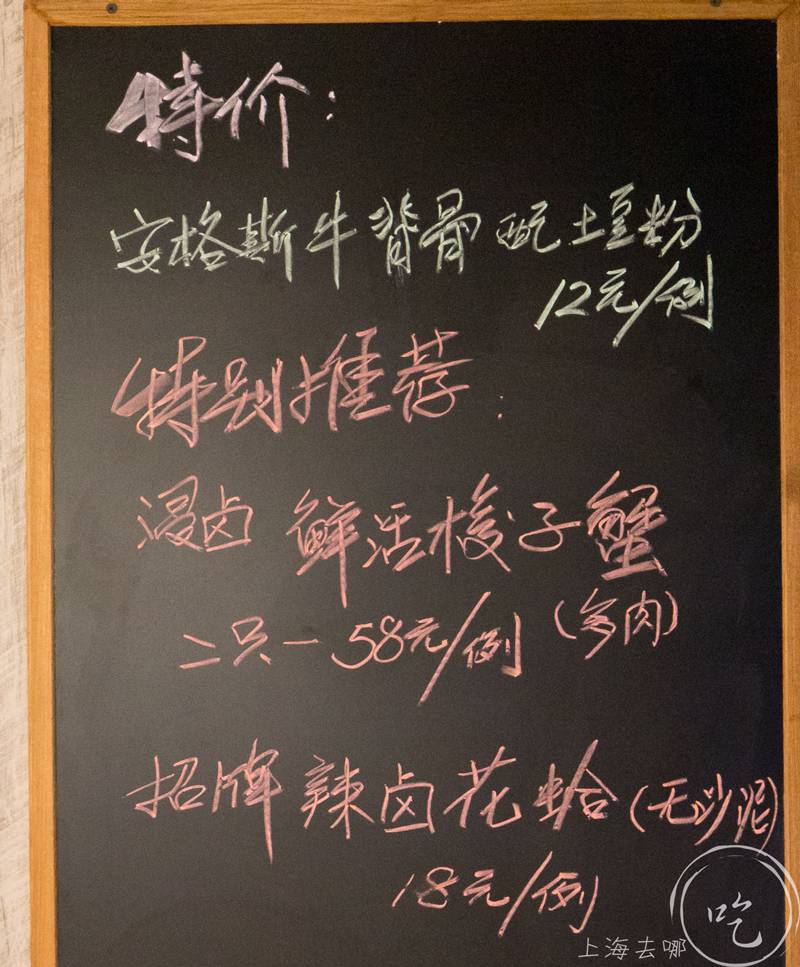 特价：
安格斯牛背骨 配土豆粉
12元/例
特别推荐：
浸卤 鲜活梭子蟹
二只一58元/例 (多肉)
招牌 辣卤花蛤 (无沙泥)
18元/例
上海去哪吃